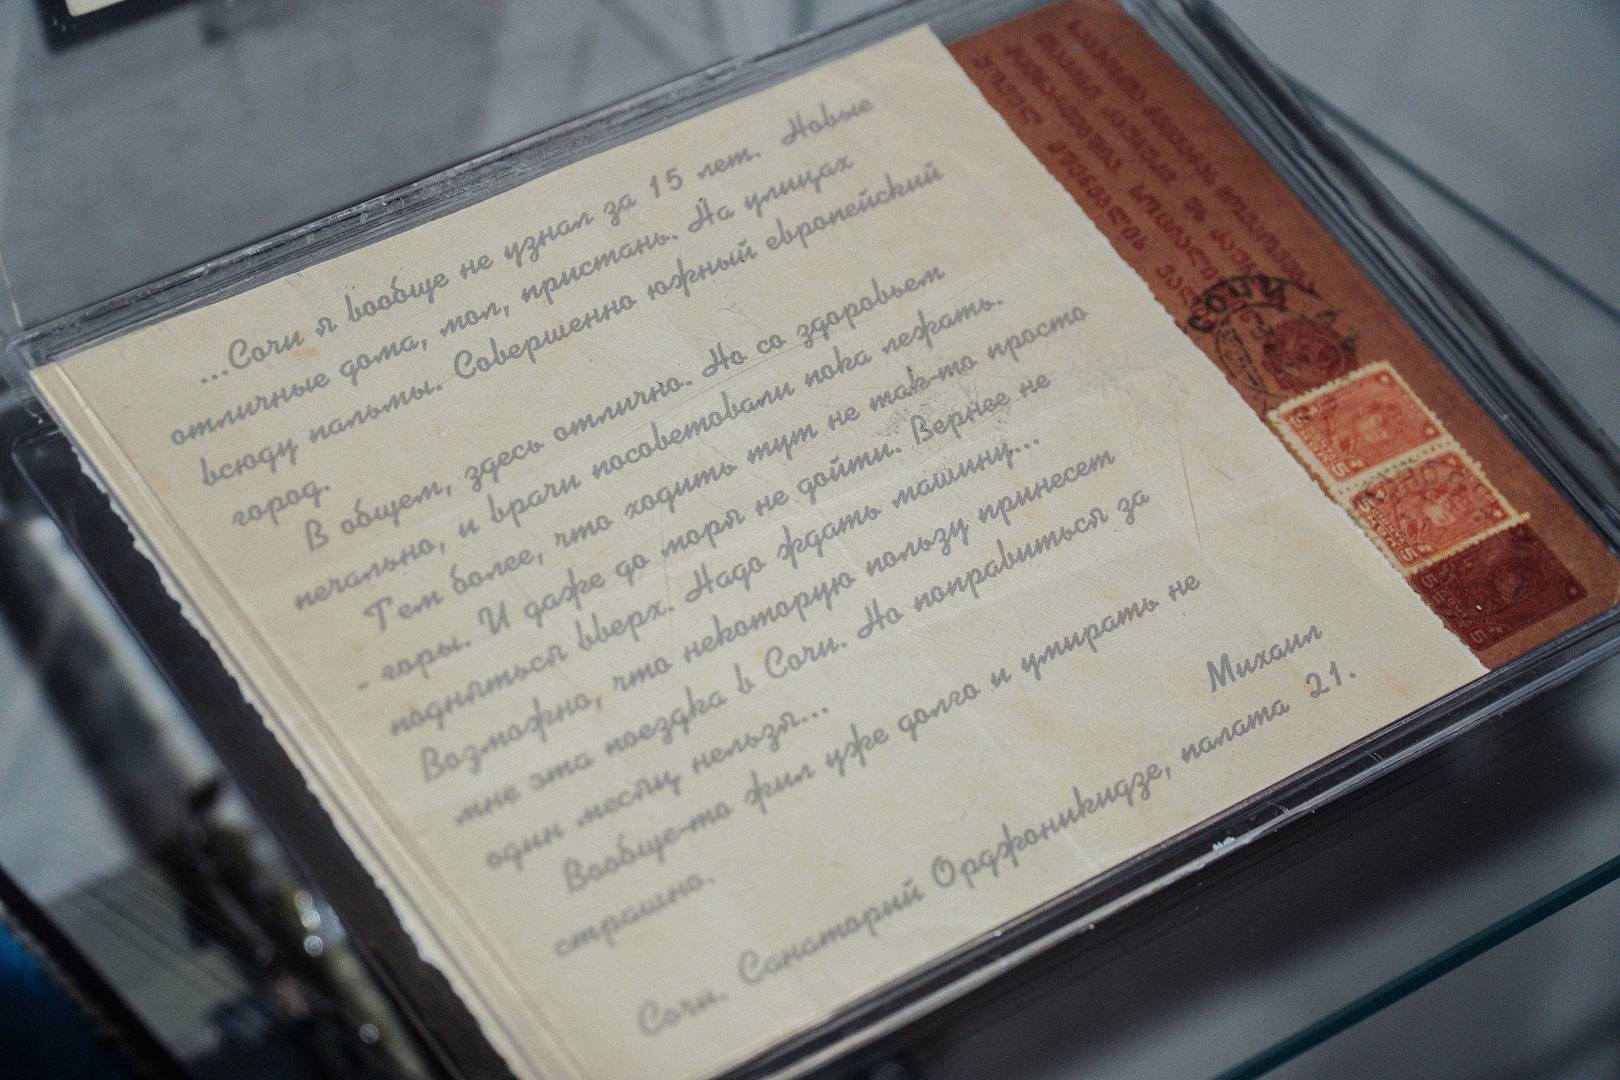 ...Сочи я вообще не узнал за 15 лет. Новые
отличные дома, мол, пристань. На улицах
всюду пальмы. Совершенно южный европейский
город.
В общем, здесь отлично. Но со здоровьем
печально, и врачи посоветовали пока лежать.
Тем более, что ходить тут не так-то просто
- горы. И даже до моря не дойти. Вернее не
подняться вверх. Надо ждать машину...
Возможно, что некоторую пользу принесет
мне эта поездка в Сочи. Но поправиться за
один месяц нельзя...
Вообще-то жил уже долго и умирать не
страшно.
Михаил
Сочи. Санаторий Орджоникидзе, палата 21.
СОЧИ